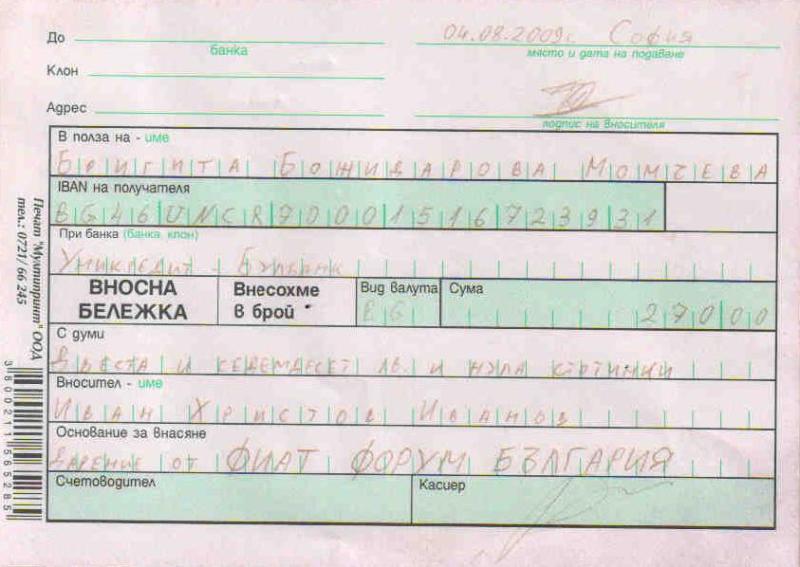 До
банка
04.08.2009г. София
място и дата на подаване
Клон
Адрес
подпис на вносителя
В полза на - име
Бригита Божидарова Момчева
IBAN на получателя
BG46UNCR70001516723931
При банка (банка, клон)
Уникредит - Булбанк
ВНОСНА БЕЛЕЖКА
Внесохме в брой
Вид валута
BG
Сума
27000
С думи
Двеста и седемдесет лв. и нула стотинки
Вносител - име
Иван Христов Иванов
Основание за внасяне
дарение от ФИАТ ФОРУМ БЪЛГАРИЯ
Счетоводител
Касиер
Печат "Мултипринт" ООД
тел.: 0721/ 66 245
3800211565285